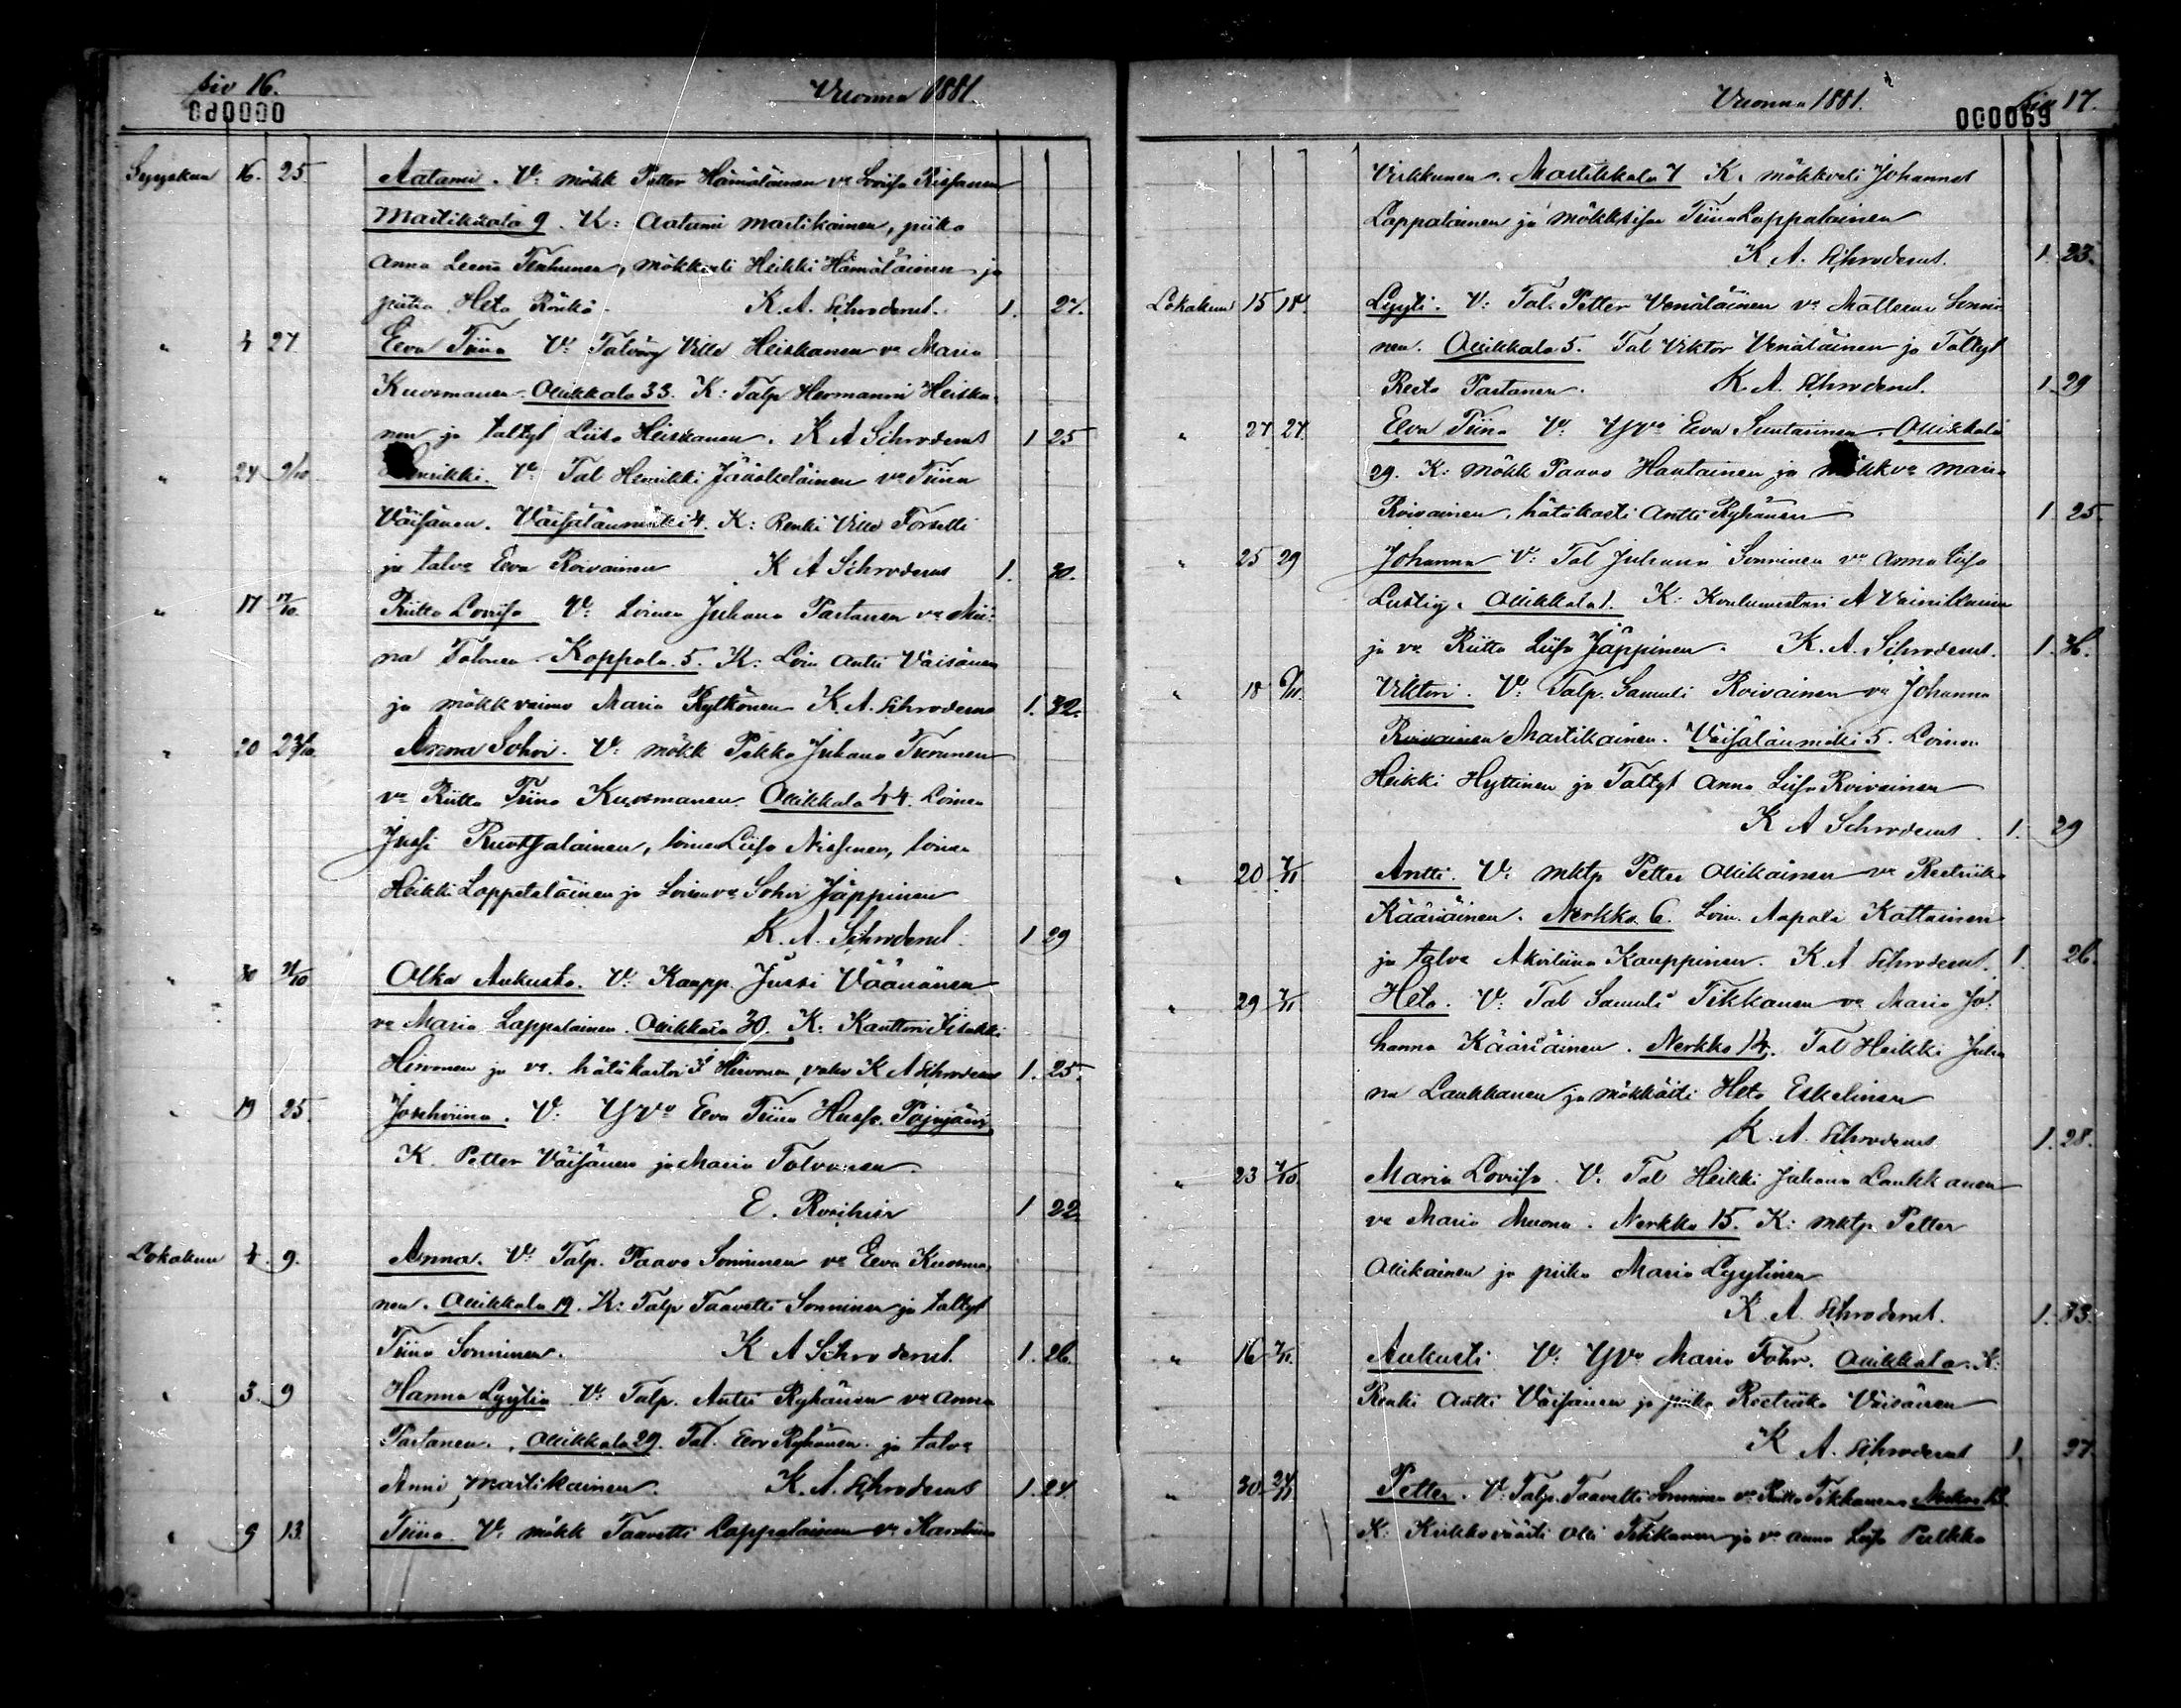 siv 16.
000060
Vuonna 1881.
Syyskuu 16. 25 Aatami. V: mökk Petter Hämäläinen va Loviisa Rissanen
Martikkala 9. K: Aatami Martikainen, piika
Anna Leena Tenhunen, mökkveli Heikki Hämäläinen ja
piika Heta Rönkö. K. A. Schroderus. 1. 27.
" 4 27 Eeva Tiina V: Talvävy Ville Heiskanen va Maria
Kuosmanen Ollikkala 33. K: Talp Hermanni Heiska-
nen ja taltyt Liisa Heiskanen. K A Schroderus 1 25
" 24 9/10 Henrikki. V: Tal Henrikki Jääskeläinen va Tiina
Väisänen. Väisälänmäki 4. K: Renki Ville Forselli
ja talva Eeva Roivainen K A Schroderus 1. 30.
" 17 17/10 Riitta Loviisa V: Loinen Juhana Partanen va Mii-
na Tolonen. Koppola 5. K: Loin Antti Väisänen
ja mökkvaimo Maria Rytkönen K. A. Schroderus 1. 32.
" 20 23/10 Anna Sohvi. V: mökk Pekka Juhana Turunen
va Riitta Tiina Kuosmanen. Ollikkala 44. Loinen
Jussi Ruotsalainen, loinen Liisa Nissinen, loinen
Heikki Lappeteläinen ja Loinenva Sohvi Jäppinen
K. A. Schroderus. 1 29
" 30 31/10 Olka Aukusta. V: Kaupp. Jussi Väänänen
va Maria Lappalainen. Ollikkala 30. K: Kanttori Iisakki
Hirvonen ja va. hätäkastoi I Hirvonen, vahv K A Schroderus 1. 25.
" 19 25. Josehviina. V: Yva Eeva Tiina Husso. Pajujärvi
K. Petter Väisänen ja Maria Tolvanen
E. Roschier 1 22.
Lokakuu 4. 9. Anna. V: Talp. Paavo Sonninen va Eeva Kuosma-
nen. Ollikkala 19. K: Talp Taavetti Sonninen ja taltyt
Tiina Sonninen. K A Schroderus. 1. 26.
" 3. 9 Hanna Lyytia V: Talp. Antti Ryhänen va Anna
Partanen. Ollikkala 29. Tal. Eero Ryhänen ja talva
Anni Martikainen. K. A. Schroderus 1. 24.
" 9 13. Tiina. V: mökk Taavetti Lappalainen va Karoliina
Vuonna 1881.
siv 17.
000069
Virkkunen. Martikkala 7 K. mökkveli Johannes
Lappalainen ja mökksisar Tiina Lappalainen
K. A. Schroderus. 1. 23.
Lokakuu 15 18. Lyyti. V: Tal. Petter Venäläinen va Matleena Sonni-
nen. Ollikkala 5. Tal Viktor Venäläinen ja Taltyt
Reeta Partanen. K. A. Schroderus. 1. 29
" 27 27. Eeva Tiina V: Yva Eeva Suntarinen. Ollikkala
29. K: mökk Paavo Hautainen ja mökkva Maria
Roivainen, hätäkasti Antti Ryhänen 1 25.
" 25 29 Johanna V: Tal Juhana Sonninen va Anna Liisa
Lustig. Ollikkala 1. K: Koulumestari A Vainikainen
ja va Riitta Liisa Jäppinen. K. A. Schroderus. 1. 36.
" 18 6/11. Viktori. V: Talp. Samuli Roivainen va Johanna
Roivainen Martikainen. Väisälänmäki 5. Loinen
Heikki Hyttinen ja Taltyt Anna Liisa Roivainen
K A Schroderus. 1. 29
" 20 7/11. Antti. V: mktp Petter Ollikainen va Reetriika
Kääriäinen. Nerkko 6. Loin. Aapeli Kattainen
ja talva Akviliina Kauppinen. K. A. Schroderus. 1. 26.
" 29 7/11 Heta. V: Tal Samuli Tikkanen va Maria Jo-
hanna Kääriäinen. Nerkko 14. Tal Heikki Juha-
na Laukkanen ja mökkäiti Heta Eskelinen
K. A. Schroderus. 1. 28.
" 23 7/10 Maria Loviisa. V. Tal Heikki Juhana Laukkanen
va Maria Muona. Nerkko 15. K: mktp Petter
Ollikainen ja piika Maria Lyytinen
K. A. Schroderus. 1. 33.
" 16 7/11. Aukusti V: Yva Maria Fohr. Ollikkala. K:
Renki Antti Väisänen ja piika Reetriika Väisänen
K A. Schroderus 1. 27.
" 30. 24/11 Petter. V: Talp. Taavetti Sonninen va Riitta Tikkanen
K: Kirkkoväärti Olli Tikkanen ja va Anna Liisa Pulkka